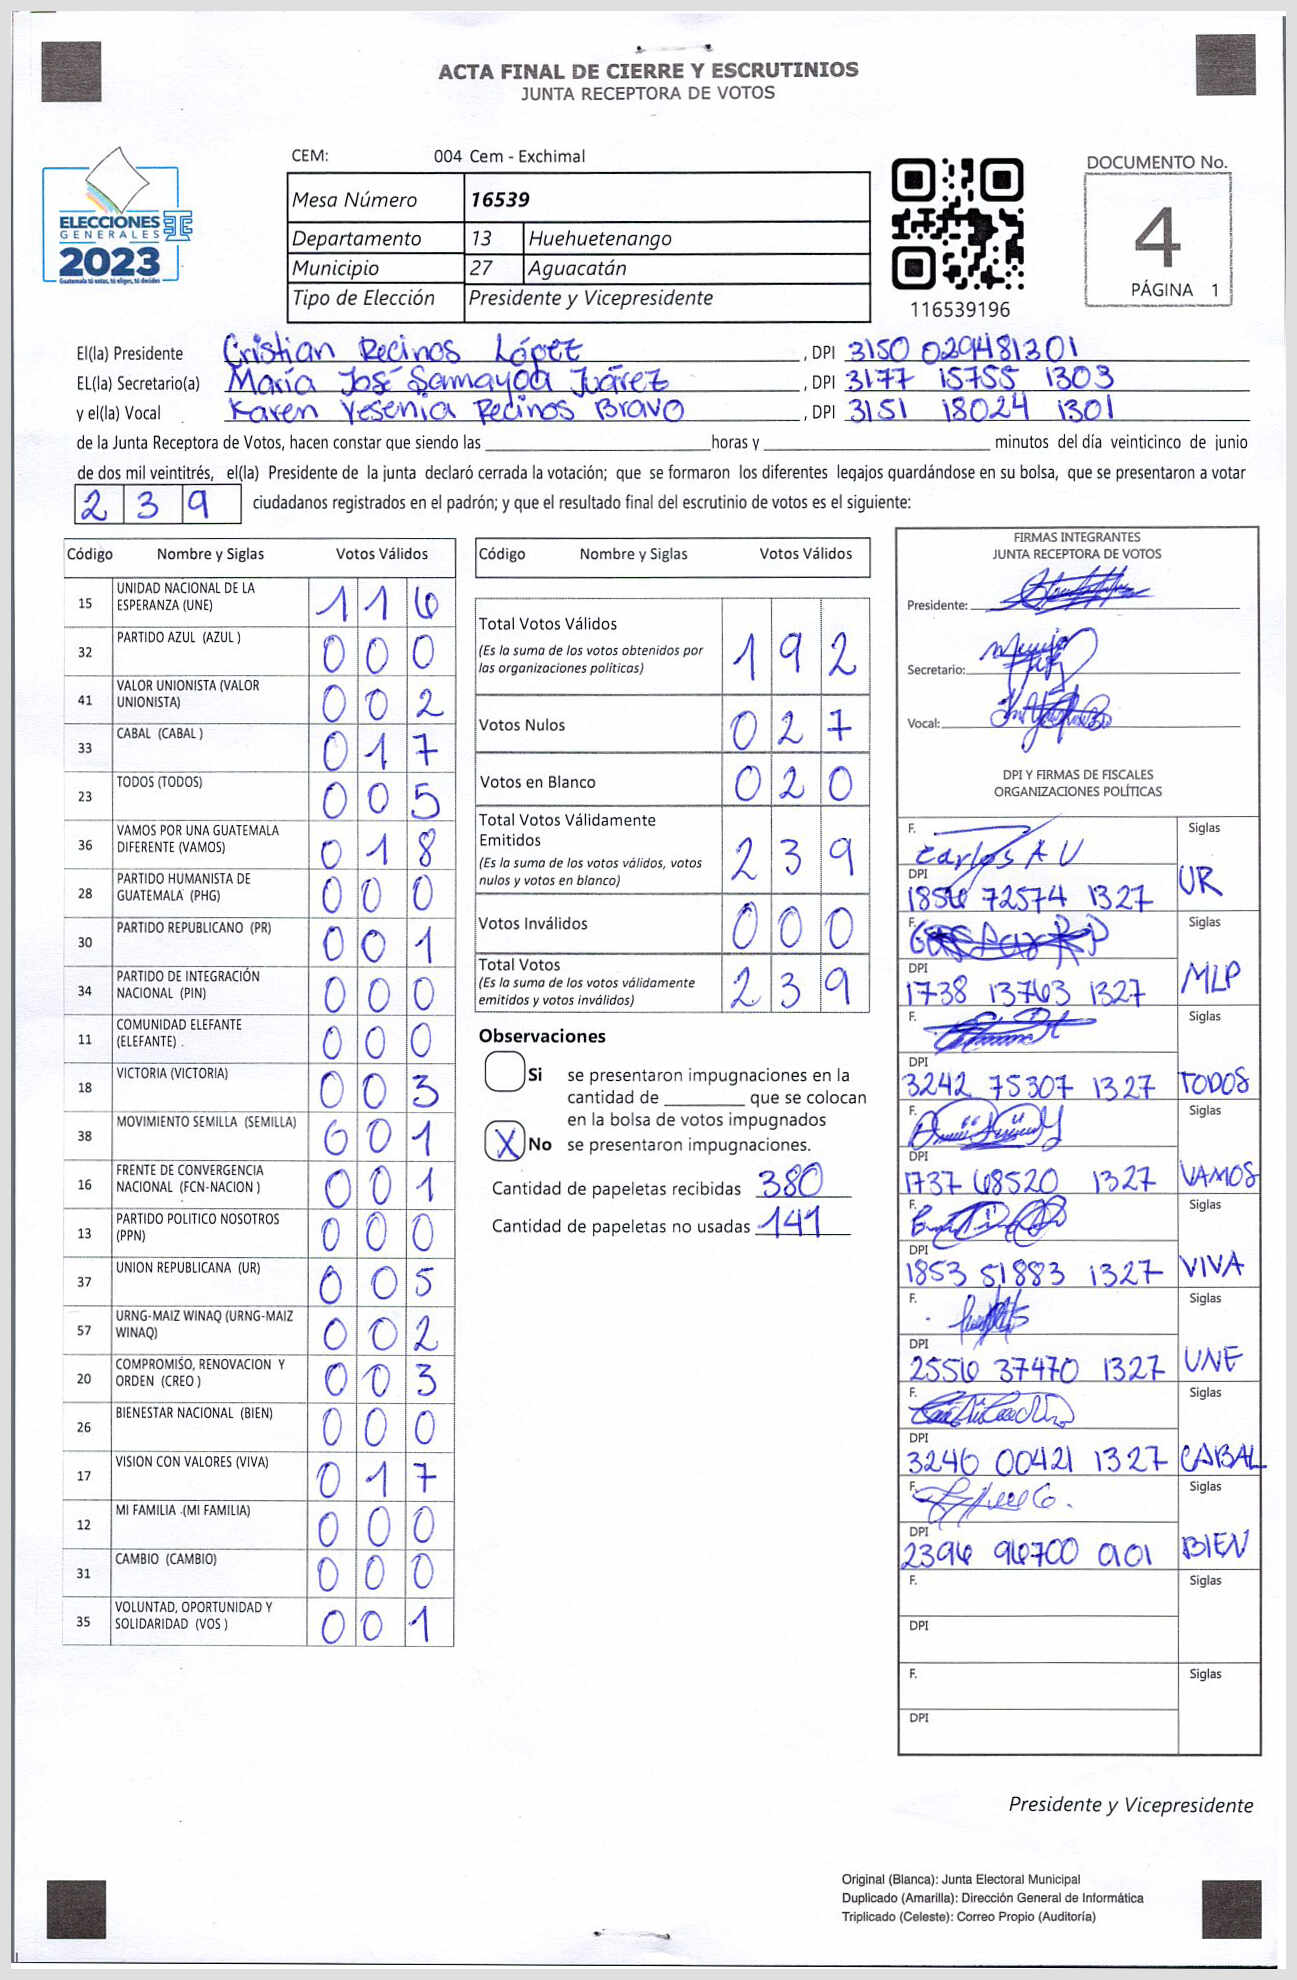 ACTA FINAL DE CIERRE Y ESCRUTINIOS
JUNTA RECEPTORA DE VOTOS
ELECCIONES
GENERALES
2023
Guatemala tú votas, tú eliges, tú decides
CEM: 004 Cem - Exchimal
Mesa Número 16539
Departamento 13 Huehuetenango
Municipio 27 Aguacatán
Tipo de Elección Presidente y Vicepresidente
116539196
DOCUMENTO No.
4
PÁGINA 1
El(la) Presidente Cristian Recinos López , DPI 3150 02948 1301
EL(la) Secretario(a) María José Samayoa Juárez , DPI 3177 15755 1303
y el(la) Vocal Karen Yesenia Recinos Bravo , DPI 3151 18024 1301
de la Junta Receptora de Votos, hacen constar que siendo las horas y minutos del día veinticinco de junio
de dos mil veintitrés, el(la) Presidente de la junta declaró cerrada la votación; que se formaron los diferentes legajos guardándose en su bolsa, que se presentaron a votar
239 ciudadanos registrados en el padrón; y que el resultado final del escrutinio de votos es el siguiente:
Código Nombre y Siglas Votos Válidos
15 UNIDAD NACIONAL DE LA ESPERANZA (UNE) 116
32 PARTIDO AZUL (AZUL ) 000
41 VALOR UNIONISTA (VALOR UNIONISTA) 002
33 CABAL (CABAL ) 017
23 TODOS (TODOS) 005
36 VAMOS POR UNA GUATEMALA DIFERENTE (VAMOS) 018
28 PARTIDO HUMANISTA DE GUATEMALA (PHG) 000
30 PARTIDO REPUBLICANO (PR) 001
34 PARTIDO DE INTEGRACIÓN NACIONAL (PIN) 000
11 COMUNIDAD ELEFANTE (ELEFANTE) 000
18 VICTORIA (VICTORIA) 003
38 MOVIMIENTO SEMILLA (SEMILLA) 001
16 FRENTE DE CONVERGENCIA NACIONAL (FCN-NACION ) 001
13 PARTIDO POLITICO NOSOTROS (PPN) 000
37 UNION REPUBLICANA (UR) 005
57 URNG-MAIZ WINAQ (URNG-MAIZ WINAQ) 002
20 COMPROMISO, RENOVACION Y ORDEN (CREO ) 003
26 BIENESTAR NACIONAL (BIEN) 000
17 VISION CON VALORES (VIVA) 017
12 MI FAMILIA (MI FAMILIA) 000
31 CAMBIO (CAMBIO) 000
35 VOLUNTAD, OPORTUNIDAD Y SOLIDARIDAD (VOS ) 001
Código Nombre y Siglas Votos Válidos
Total Votos Válidos 192
(Es la suma de los votos obtenidos por
las organizaciones políticas)
Votos Nulos 027
Votos en Blanco 020
Total Votos Válidamente
Emitidos 239
(Es la suma de los votos válidos, votos
nulos y votos en blanco)
Votos Inválidos 000
Total Votos 239
(Es la suma de los votos válidamente
emitidos y votos inválidos)
Observaciones
Si se presentaron impugnaciones en la
cantidad de que se colocan
en la bolsa de votos impugnados
X No se presentaron impugnaciones.
Cantidad de papeletas recibidas 380
Cantidad de papeletas no usadas 141
FIRMAS INTEGRANTES
JUNTA RECEPTORA DE VOTOS
Presidente:
Secretario:
Vocal:
DPI Y FIRMAS DE FISCALES
ORGANIZACIONES POLÍTICAS
F. Carlos A U Siglas
DPI 1856 72574 1327 UR
F. Siglas
DPI 1738 13763 1327 MLP
F. Siglas
DPI 3242 75307 1327 TODOS
F. Siglas
DPI 1737 68520 1327 VAMOS
F. Siglas
DPI 1853 51883 1327 VIVA
F. Siglas
DPI 2556 37470 1327 UNE
F. Siglas
DPI 3246 00421 1327 CABAL
F. Siglas
DPI 2396 96700 0101 BIEN
F. Siglas
DPI
F. Siglas
DPI
Presidente y Vicepresidente
Original (Blanca): Junta Electoral Municipal
Duplicado (Amarilla): Dirección General de Informática
Triplicado (Celeste): Correo Propio (Auditoría)